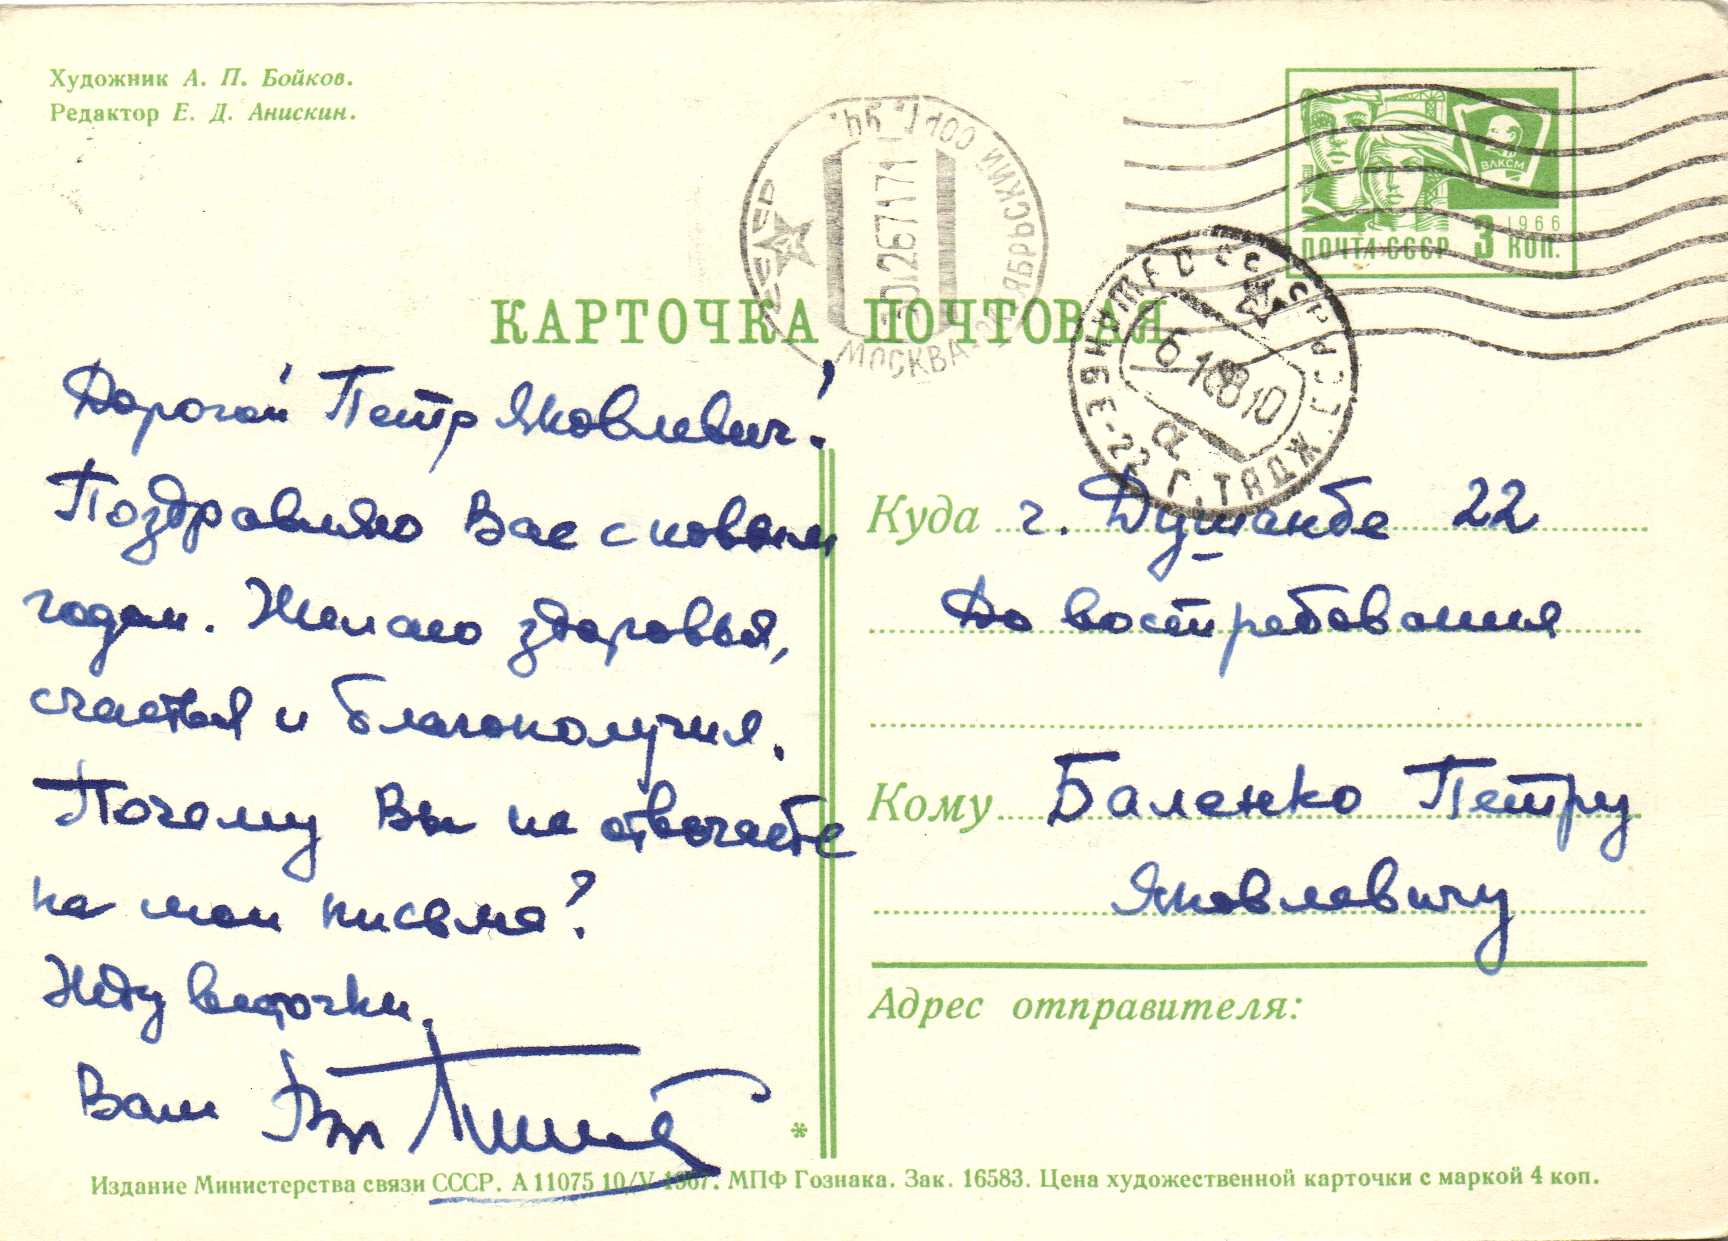 Художник А. П. Бойков.
Редактор Е. Д. Анискин.
ВЛКСМ
1966
ПОЧТА СССР 3 КОП.
МОСКВА
КАРТОЧКА ПОЧТОВАЯ
Дорогой Петр Яковлевич!
Поздравляю Вас с новым
годом. Желаю здоровья,
счастья и благополучия.
Почему Вы не отвечаете
на мои письма?
Жду весточки.
Ваш
Куда г. Душанбе 22
До востребования
Кому Баленко Петру
Яковлевичу
Адрес отправителя:
*
Издание Министерства связи СССР. А 11075 10/V-1967. МПФ Гознака. Зак. 16583. Цена художественной карточки с маркой 4 коп.